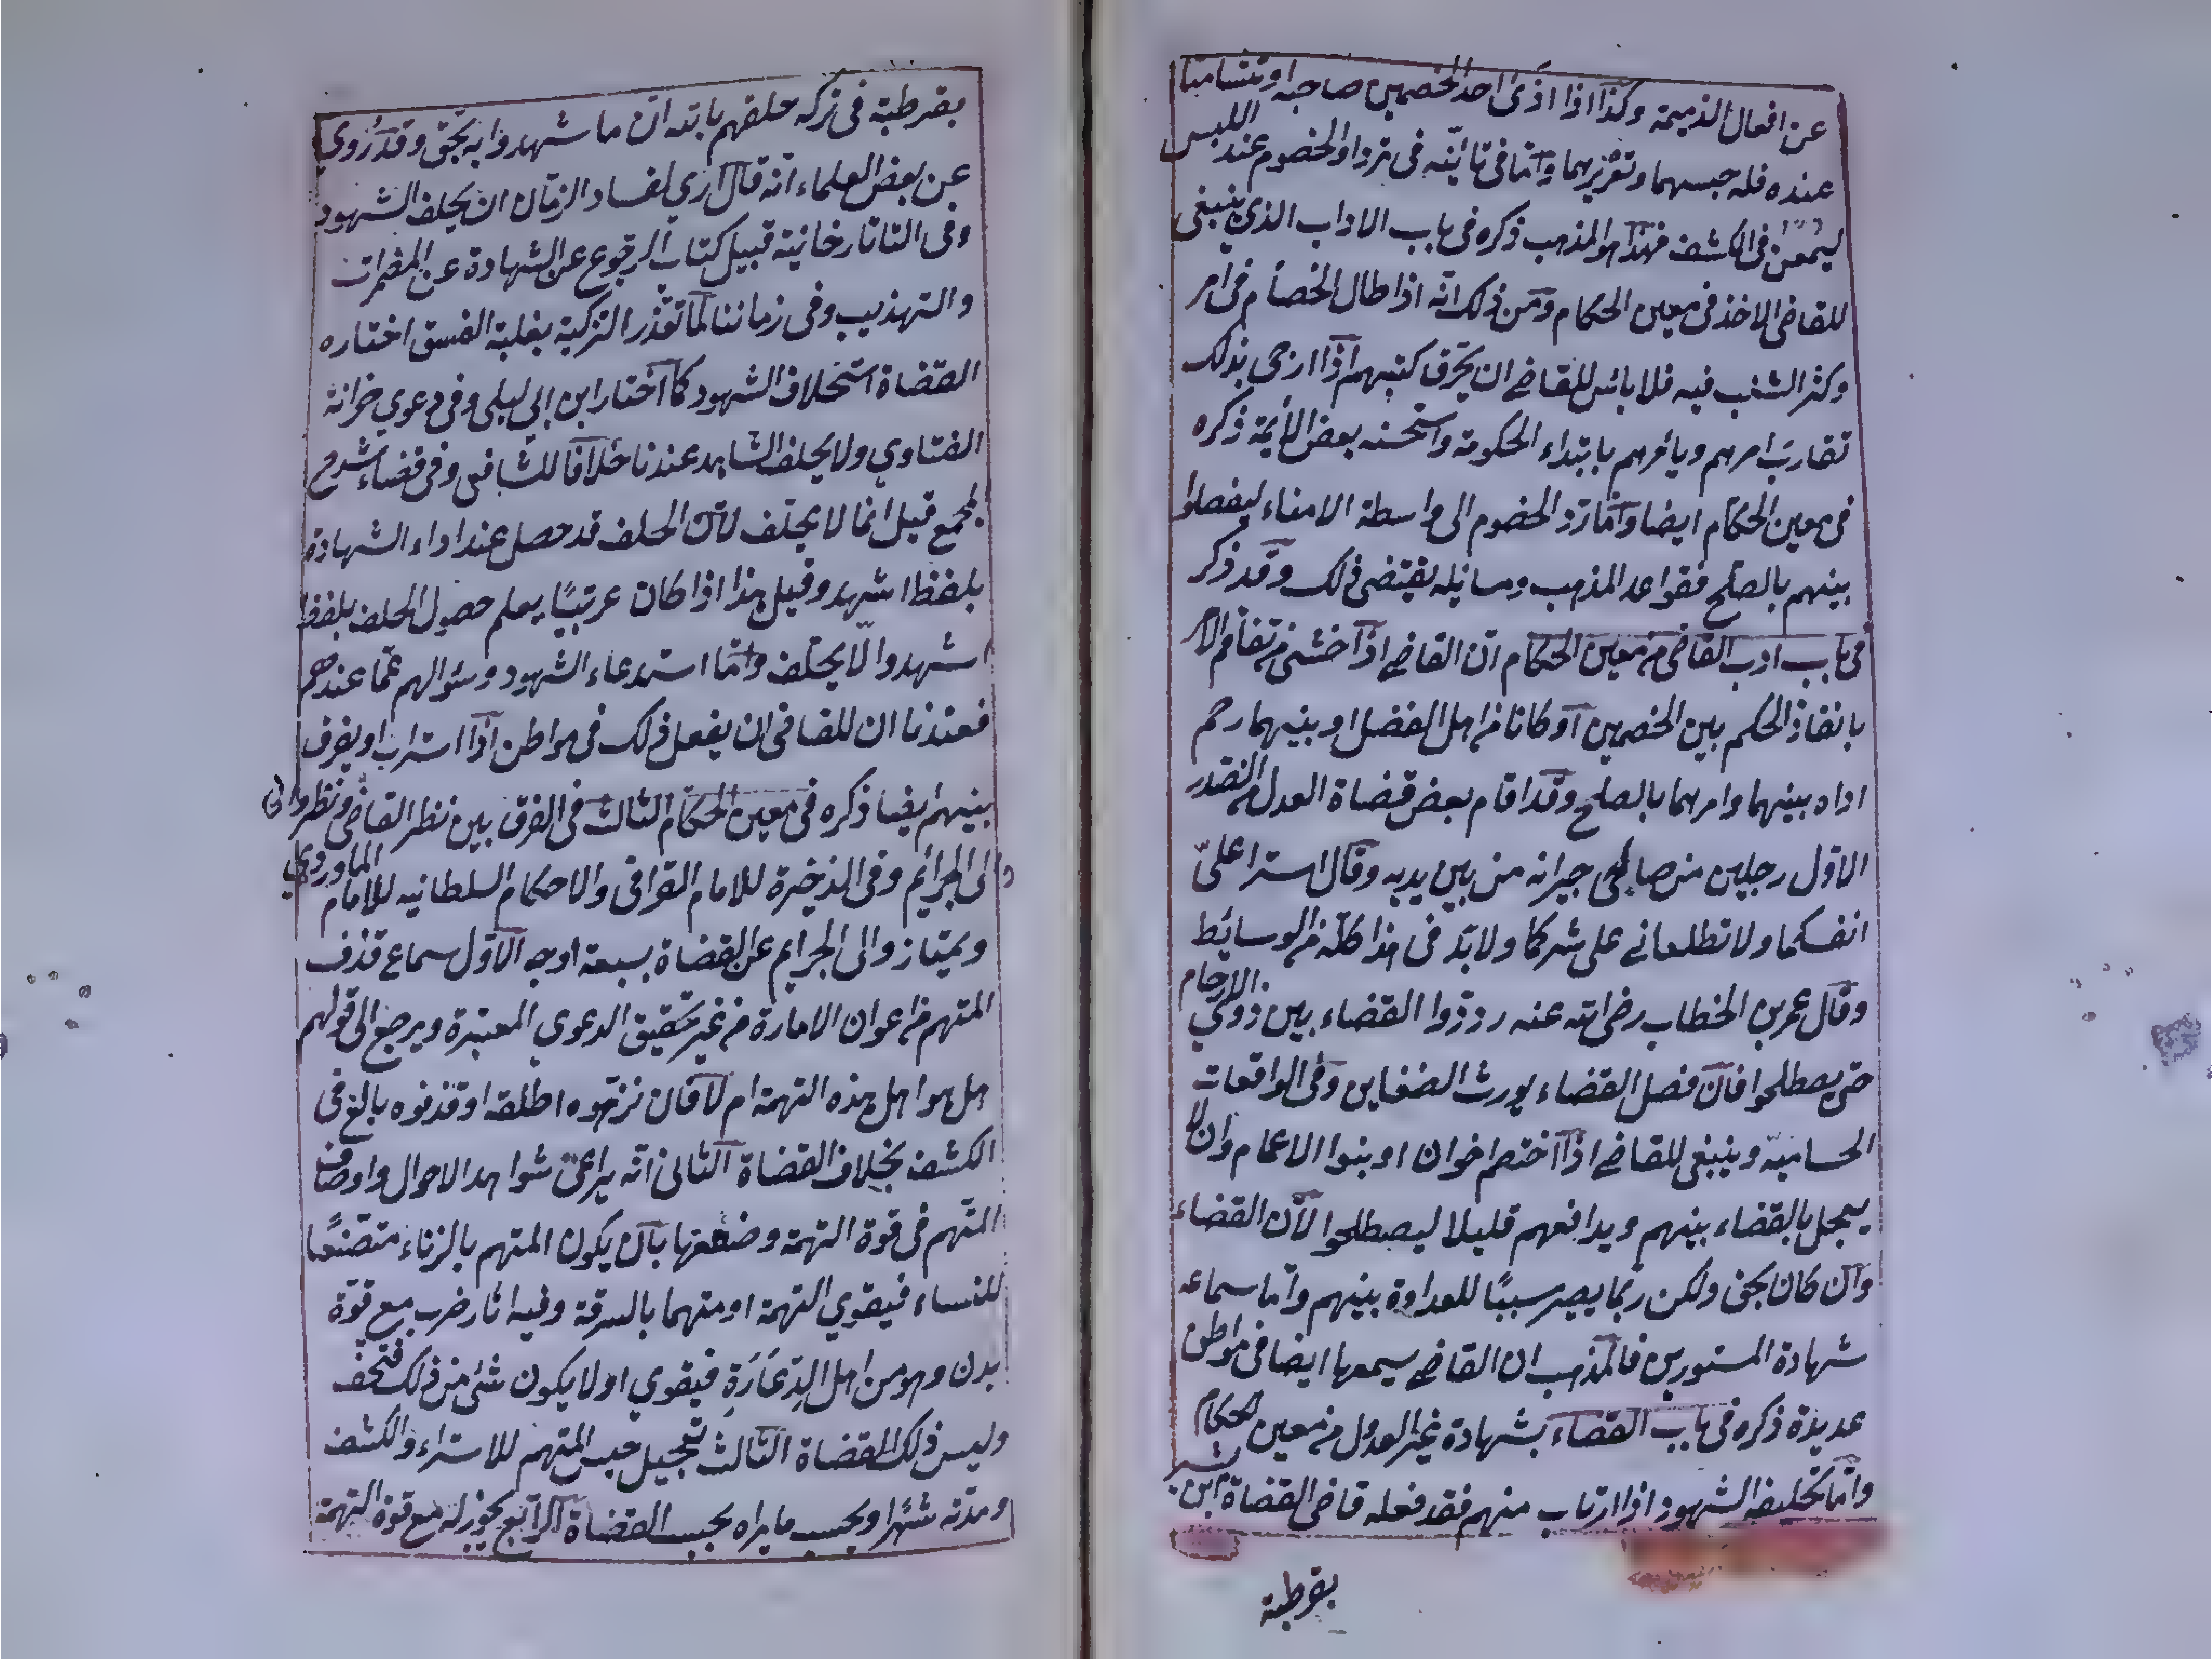 عن افعال الذميمة وكذا اذا اذى احد الخصمين صاحبه او تشاتما
عنده فله حبسهما وتعزيرهما واما في تانيه في ترداد الخصوم عند اللبس
ليمعن في الكشف فهذا هو المذهب ذكره في باب الاداب الذي ينبغي
للقاضي الاخذ في معين الحكام ومن ذلك انه اذا طال الخصام في امر
وكثر الشغب فيه فلا بأس للقاضي ان يحرق كتبهم اذا ارجى بذلك
تقارب امرهم ويأمرهم بابتداء الحكومة واستحسنه بعض الأيمة ذكره
في معين الحكام ايضا واما رد الخصوم الى واسطة الامناء ليفصلوا
بينهم بالصلح فقواعد المذهب ومسائله يقتضى ذلك وقد ذكر
في باب ادب القاضي من معين الحكام ان القاضي اذا خشى من تفاقم الامر
بانفاذ الحكم بين الخصمين او كانا من اهل الفضل او بينهما رحم
اداه بينهما وامرهما بالصلح وقد اقام بعض قضاة العدل من الصدر
الاول رجلين من صالحي جيرانه من بين يديه وقال استرا على
انفسكما ولا تطلعاني على سركما ولا بد في هذا كله من الوسائط
وقال عمر بن الخطاب رضي الله عنه ردّدوا القضاء بين ذوي الارحام
حتى يصطلحوا فان فصل القضاء يورث الضغاين وفي الواقعات
الحساميّة وينبغي للقاضي اذا اختصم اخوان او بنوا الاعمام وان لا
يعجل بالقضاء بينهم ويدافعهم قليلا ليصطلحوا لأن القضاء
وان كان بحق ولكن ربما يصير سببًا للعداوة بينهم واما سماعه
شهادة المستورين فالمذهب ان القاضي يسمعها ايضا في مواطن
عديدة ذكره في باب القضاء بشهادة غير العدول من معين الحكام
واما تحليف الشهود اذا ارتاب منهم فقد فعله قاضي القضاة ابن بشر
بقرطبة
بقرطبة في تركه حلفهم بالله ان ما شهدوا به بحقّ وقد رُوي
عن بعض العلماء انه قال ارى لفساد الزمان ان يحلف الشهود
وفي التاتارخانية قبيل كتاب الرجوع عن الشهادة عن المضمرات
والتهذيب وفي زماننا لما تعذر التزكية بغلبة الفسق اختاره
القضاة استحلاف الشهود كما اختار ابن ابي ليلى وفي دعوي خزانة
الفتاوي ولا يحلف الشاهد عندنا خلافا للشافعي وفي قضاء شرح
المجمع قيل انما لا يحلف لأن الحلف قد حصل عند اداء الشهادة
بلفظ اشهد وقيل هذا اذا كان عربيًا يعلم حصول الحلف بلفظ
اشهد والّا يحلف واما استدعاء الشهود وسئوالهم عمّا عندهم
فعندنا ان للقاضي ان يفعل ذلك في مواطن اذا استراب او يفرق
بينهم ايضا ذكره في معين الحكام الثالث في الفرق بين نظر القاضي ونظر والى
الى الجرائم وفي الذخيرة للامام القرافي والاحكام السلطانيه للامام الماوردي
ويمتاز والى الجرايم عن القضاة بسبعة اوجه الاول سماع قذف
المتهم من اعوان الامارة من غير تحقيق الدعوي المعتبرة ويرجع الى قولهم
هل هو اهل هذه التهمة ام لا فان نزهوه اطلقه او قذفوه بالغ في
الكشف بخلاف القضاة الثاني انه يراعى شواهد الاحوال واوصاف
المتهم في قوة التهمة وضعفها بان يكون المتهم بالزناء متصنّعًا
للنساء فيقوي التهمة او متهما بالسرقة وفيه اثار ضرب مع قوّة
بدن وهو من اهل الدِعَارَةِ فيقوي او لا يكون شئ من ذلك فتخف
وليس ذلك للقضاة الثالث تعجيل حبس المتهم للاستبراء والكشف
ومدّته شهرًا وبحسب ما يراه بحسب القضاة الرابع يجوز له مع قوة التهمة